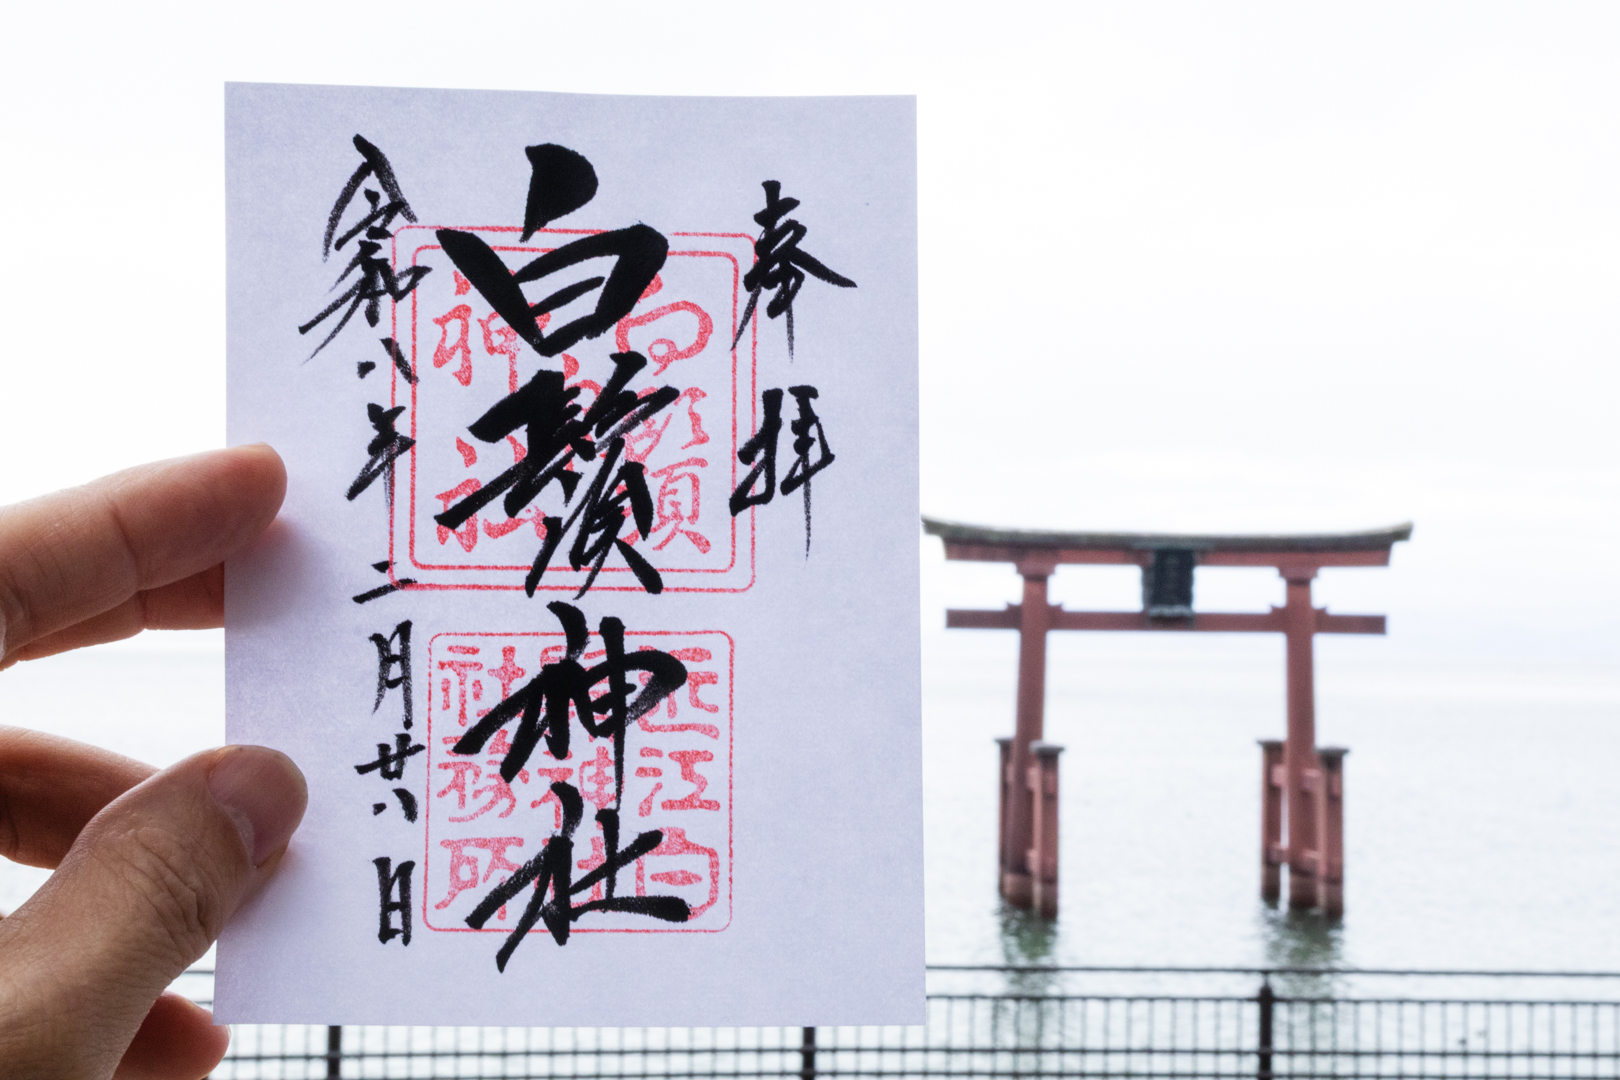 奉拝
白鬚神社
令和八年二月廿八日
白鬚
神社
近江白
鬚神社
社務所